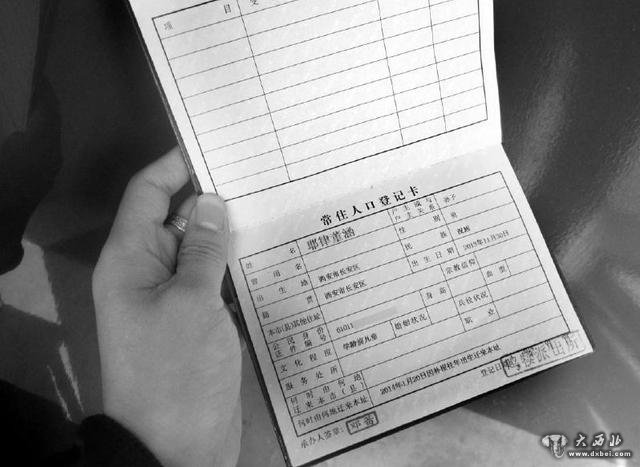 项 目
常住人口登记卡
姓 名 耶律董涵
户主或与户主关系 孙子
曾用名
性 别 男
出生地 西安市长安区
民 族 汉族
籍 贯 西安市长安区
出生日期 2013年11月30日
本市(县)其他住址
宗教信仰
公民身份证件编号 61011
身高
血型
文化程度 学龄前儿童
婚姻状况
兵役状况
服务处所
职业
何时由何地迁来本市(县)
何时由何地迁来本址 2014年1月20日因补报往年出生迁来本址
承办人签章: 邓茜
登记日期
派出所
大西北
www.dxbei.com